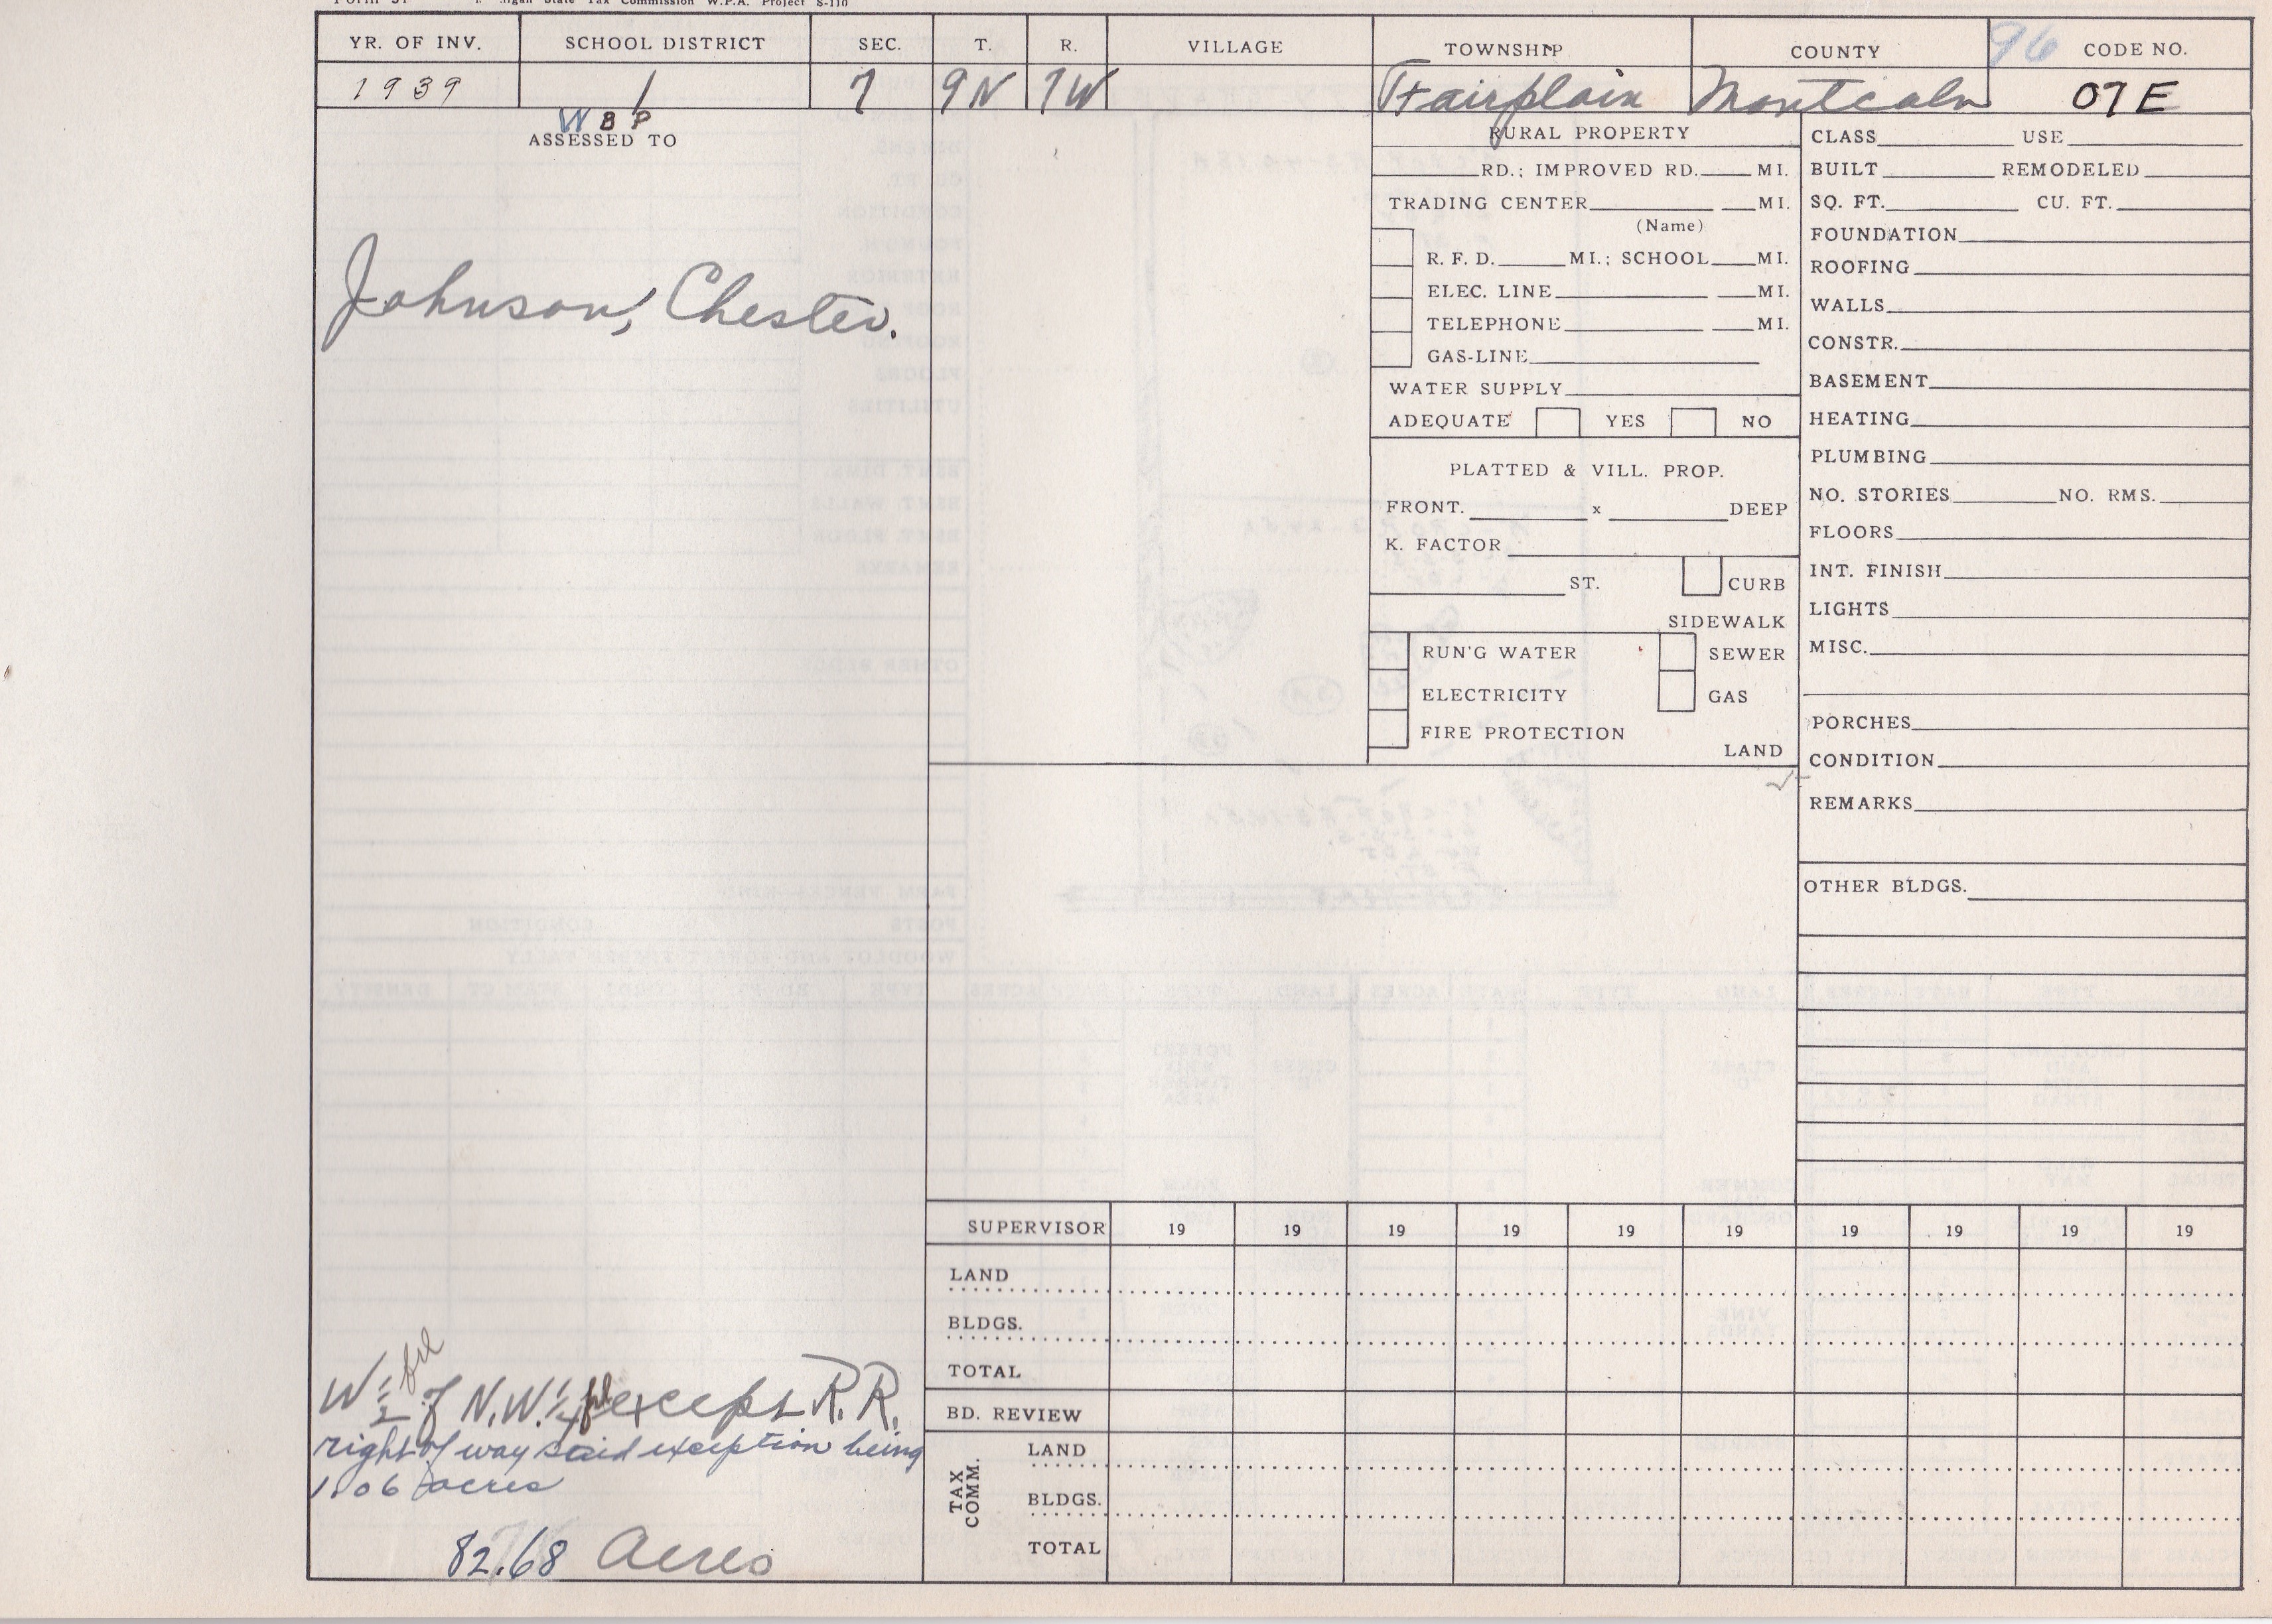 Form 51 Michigan State Tax Commission W.P.A. Project S-110
YR. OF INV. SCHOOL DISTRICT SEC. T. R. VILLAGE TOWNSHIP COUNTY 96 CODE NO.
1939 1 7 9N 7W Fairplain Montcalm 07E
W B P
ASSESSED TO
Johnson, Chester.
W 1/2 frl of N.W. 1/4 frl except R.R.
right of way said exception being
1.06 acres
82.68 Acres
RURAL PROPERTY
RD.; IMPROVED RD. MI.
TRADING CENTER MI.
(Name)
R. F. D. MI.; SCHOOL MI.
ELEC. LINE MI.
TELEPHONE MI.
GAS-LINE
WATER SUPPLY
ADEQUATE YES NO
PLATTED & VILL. PROP.
FRONT. x DEEP
K. FACTOR
ST. CURB
SIDEWALK
RUN'G WATER SEWER
ELECTRICITY GAS
FIRE PROTECTION
LAND
CLASS USE
BUILT REMODELED
SQ. FT. CU. FT.
FOUNDATION
ROOFING
WALLS
CONSTR.
BASEMENT
HEATING
PLUMBING
NO. STORIES NO. RMS.
FLOORS
INT. FINISH
LIGHTS
MISC.
PORCHES
CONDITION
REMARKS
OTHER BLDGS.
SUPERVISOR 19 19 19 19 19 19 19 19 19 19
LAND
BLDGS.
TOTAL
BD. REVIEW
TAX COMM.
LAND
BLDGS.
TOTAL